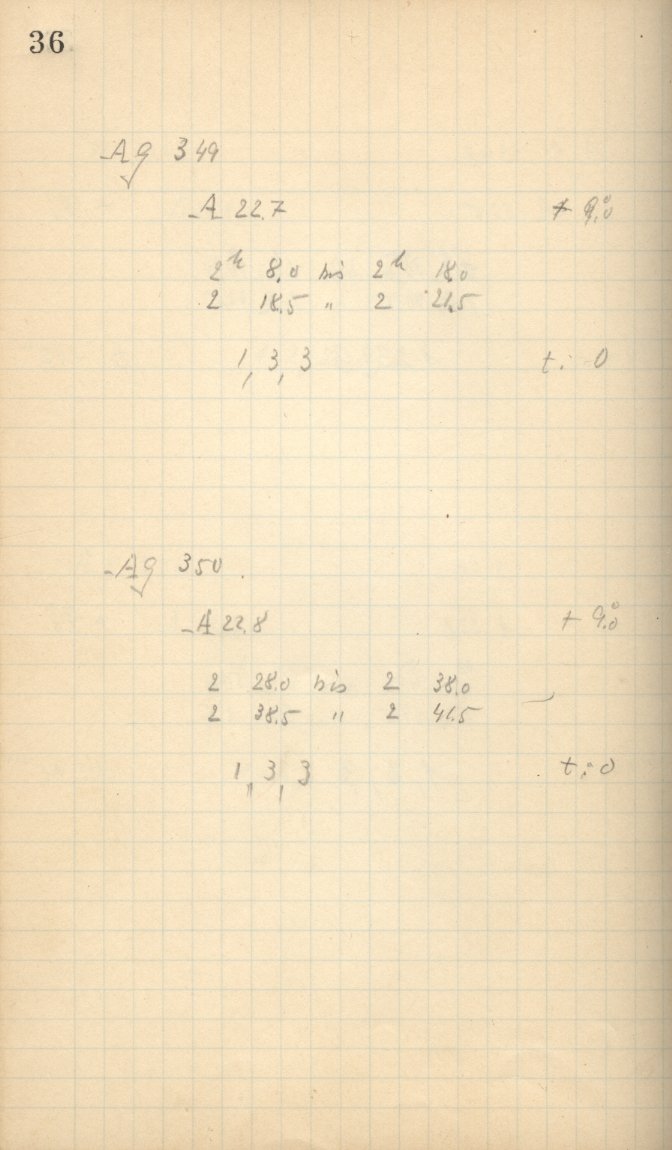 36
Ag 349
A 22.7 + 9.°0
2h 8.0 bis 2h 18.0
2 18.5 " 2 21.5
1, 3, 3 t: 0
Ag 350
A 22.8 + 9.°0
2 28.0 bis 2 38.0
2 38.5 " 2 41.5
1, 3, 3 t: 0